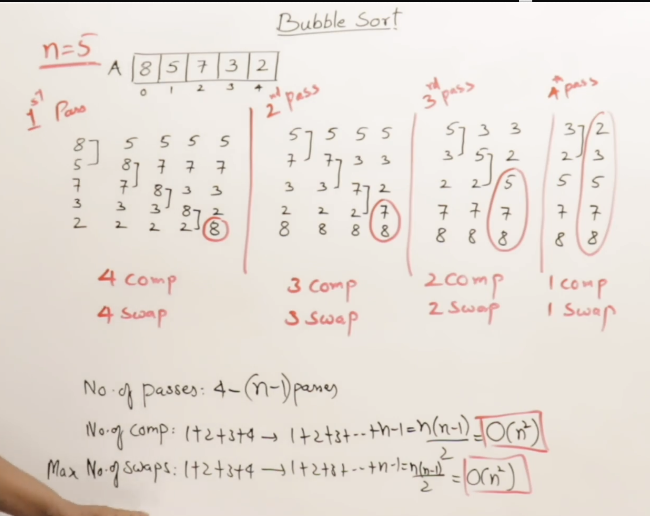 Bubble Sort
n=5
A 8 5 7 3 2
0 1 2 3 4
1st Pass
8 5 5 5 5
5 8 7 7 7
7 7 8 3 3
3 3 3 8 2
2 2 2 2 8
4 comp
4 swap
2nd pass
5 5 5 5
7 7 3 3
3 3 7 2
2 2 2 7
8 8 8 8
3 comp
3 swap
3rd pass
5 3 3
3 5 2
2 2 5
7 7 7
8 8 8
2 comp
2 swap
4th pass
3 2
2 3
5 5
7 7
8 8
1 comp
1 swap
No. of passes: 4 - (n-1) passes
No. of comp: 1+2+3+4 → 1+2+3+--+n-1 = n(n-1)/2 = O(n²)
Max No. of swaps: 1+2+3+4 → 1+2+3+--+n-1 = n(n-1)/2 = O(n²)